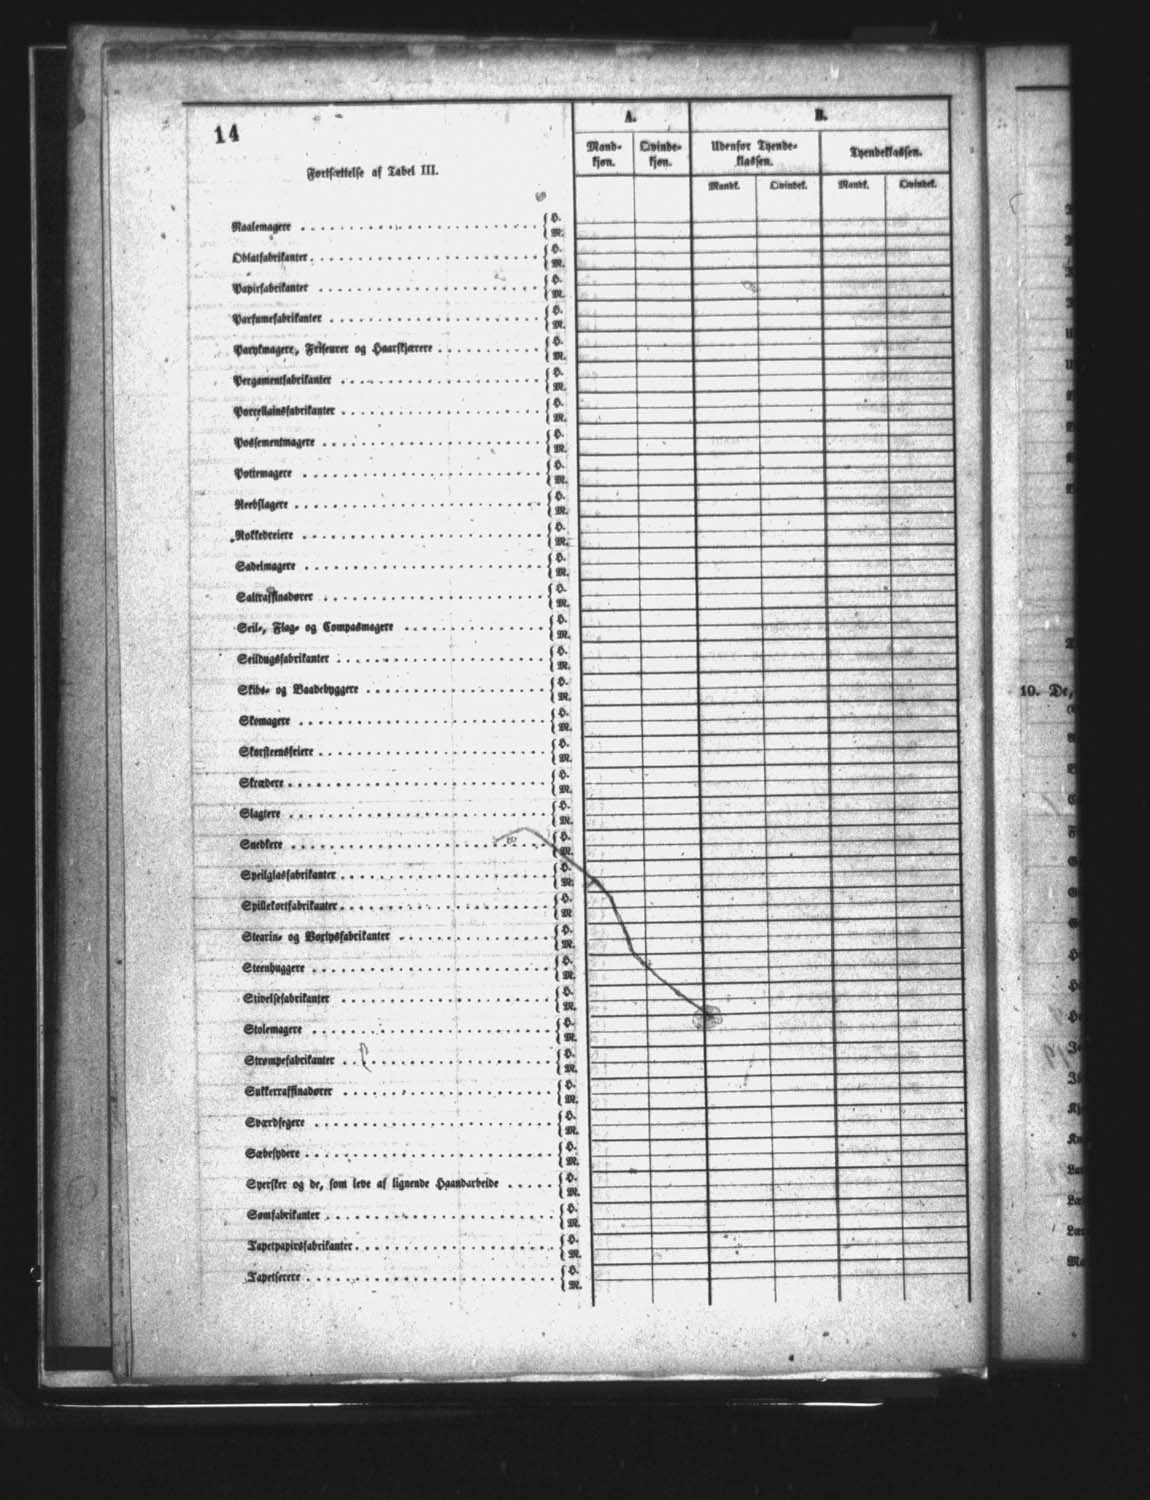 14
Fortsættelse af Tabel III.
A. B.
Mandkjøn. Qvindekjøn. Udenfor Tyendeklassen. Tyendeklassen.
Mandk. Qvindek. Mandk. Qvindek.
Naalemagere { H. M.
Oblatfabrikanter { H. M.
Papirfabrikanter { H. M.
Parfumefabrikanter { H. M.
Parykmagere, Friseurer og Haarskjærere { H. M.
Pergamentfabrikanter { H. M.
Porcellainsfabrikanter { H. M.
Possementmagere { H. M.
Pottemagere { H. M.
Reebslagere { H. M.
Rokkedreiere { H. M.
Sadelmagere { H. M.
Saltraffinadører { H. M.
Seil-, Flag- og Compasmagere { H. M.
Seildugsfabrikanter { H. M.
Skibs- og Baadebyggere { H. M.
Skomagere { H. M.
Skorsteensfeiere { H. M.
Skrædere { H. M.
Slagtere { H. M.
Snedkere { H. M.
Speilglasfabrikanter { H. M.
Spillekortfabrikanter { H. M
Stearin- og Voxlysfabrikanter { H. M.
Steenhuggere { H. M.
Stivelsefabrikanter { H. M.
Stolemagere { H. M.
Strømpefabrikanter { H. M.
Sukkerraffinadører { H. M.
Sværdfegere { H. M.
Sæbesydere { H. M.
Syersker og de, som leve af lignende Haandarbeide { H. M.
Sømfabrikanter { H. M.
Tapetpapirsfabrikanter { H. M.
Tapetserere { H. M.
10. De,